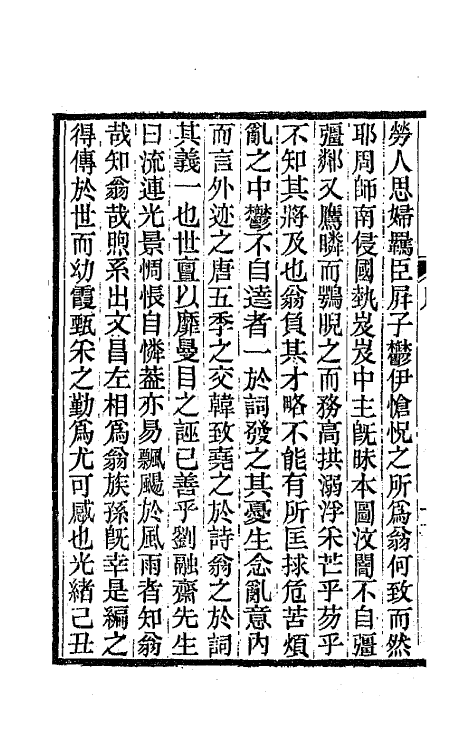 勞人思婦羈臣屛子鬱伊愴怳之所爲翁何致而然
耶周師南侵國埶岌岌中主旣昧本圖汶闇不自彊
彊鄰又鷹瞵而鶚睨之而務高拱溺浮采芒乎芴乎
不知其將及也翁負其才略不能有所匡捄危苦煩
亂之中鬱不自達者一於詞發之其憂生念亂意內
而言外迹之唐五季之交韓致堯之於詩翁之於詞
其義一也世亶以靡曼目之誣已善乎劉融齋先生
曰流連光景惆悵自憐葢亦易飄颺於風雨者知翁
哉知翁哉煦系出文昌左相爲翁族孫旣幸是編之
得傳於世而幼霞甄采之勤爲尤可感也光緖己丑